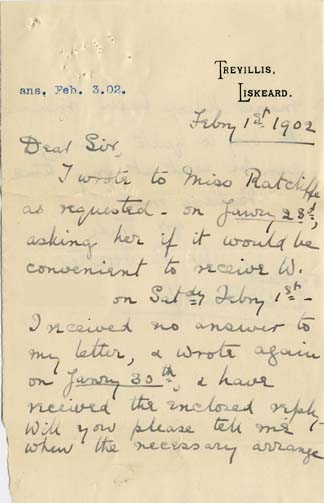 TREVILLIS,
LISKEARD.
ans. Feb. 3.02.
Febry 1st 1902
Dear Sir,
I wrote to Miss Ratcliffe
as requested - on Janry 28d,
asking her if it would be
convenient to receive W.
on Satdy Febry 1st -
I received no answer to
my letter, & wrote again
on Janry 30th, & have
received the enclosed reply
Will you please tell me
when the necessary arrange